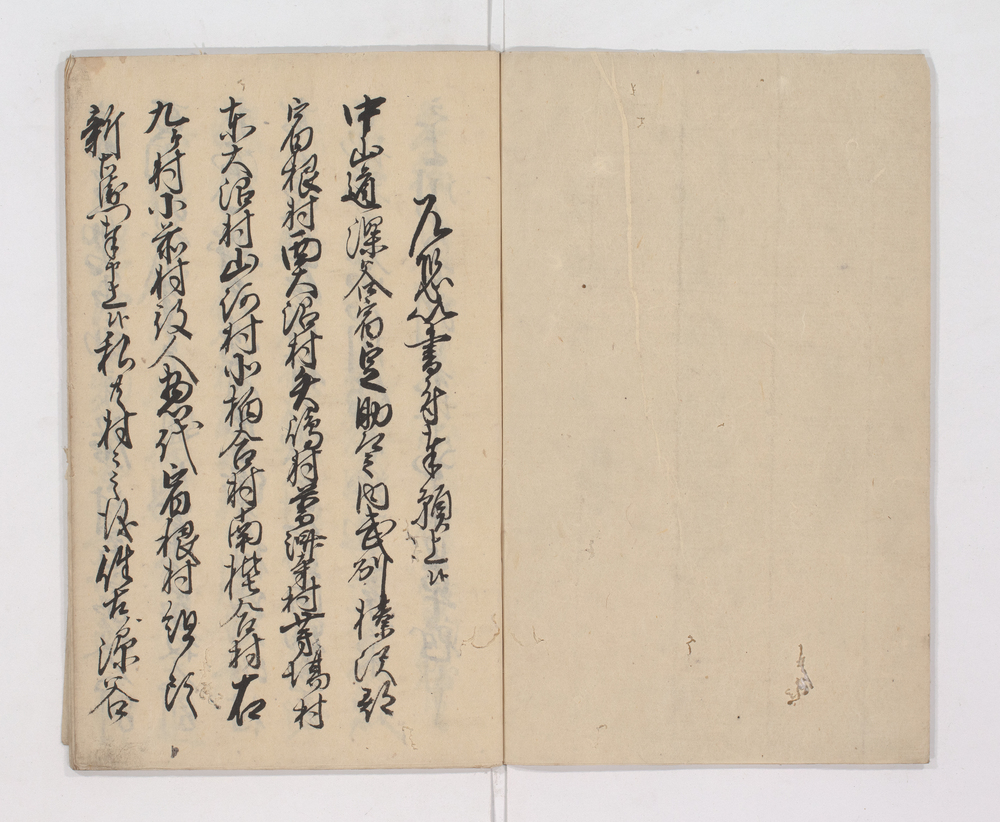 乍恐以書付奉願上候
中山道深谷宿定助郷之内武州榛沢郡
宿根村西大沼村矢嶋村普濟寺村萱場村
東大沼村山河村北柏合村南樫合村右
九ヶ村小前村役人惣代宿根村組頭
新右衛門奉申上候私共村々之儀往古深谷